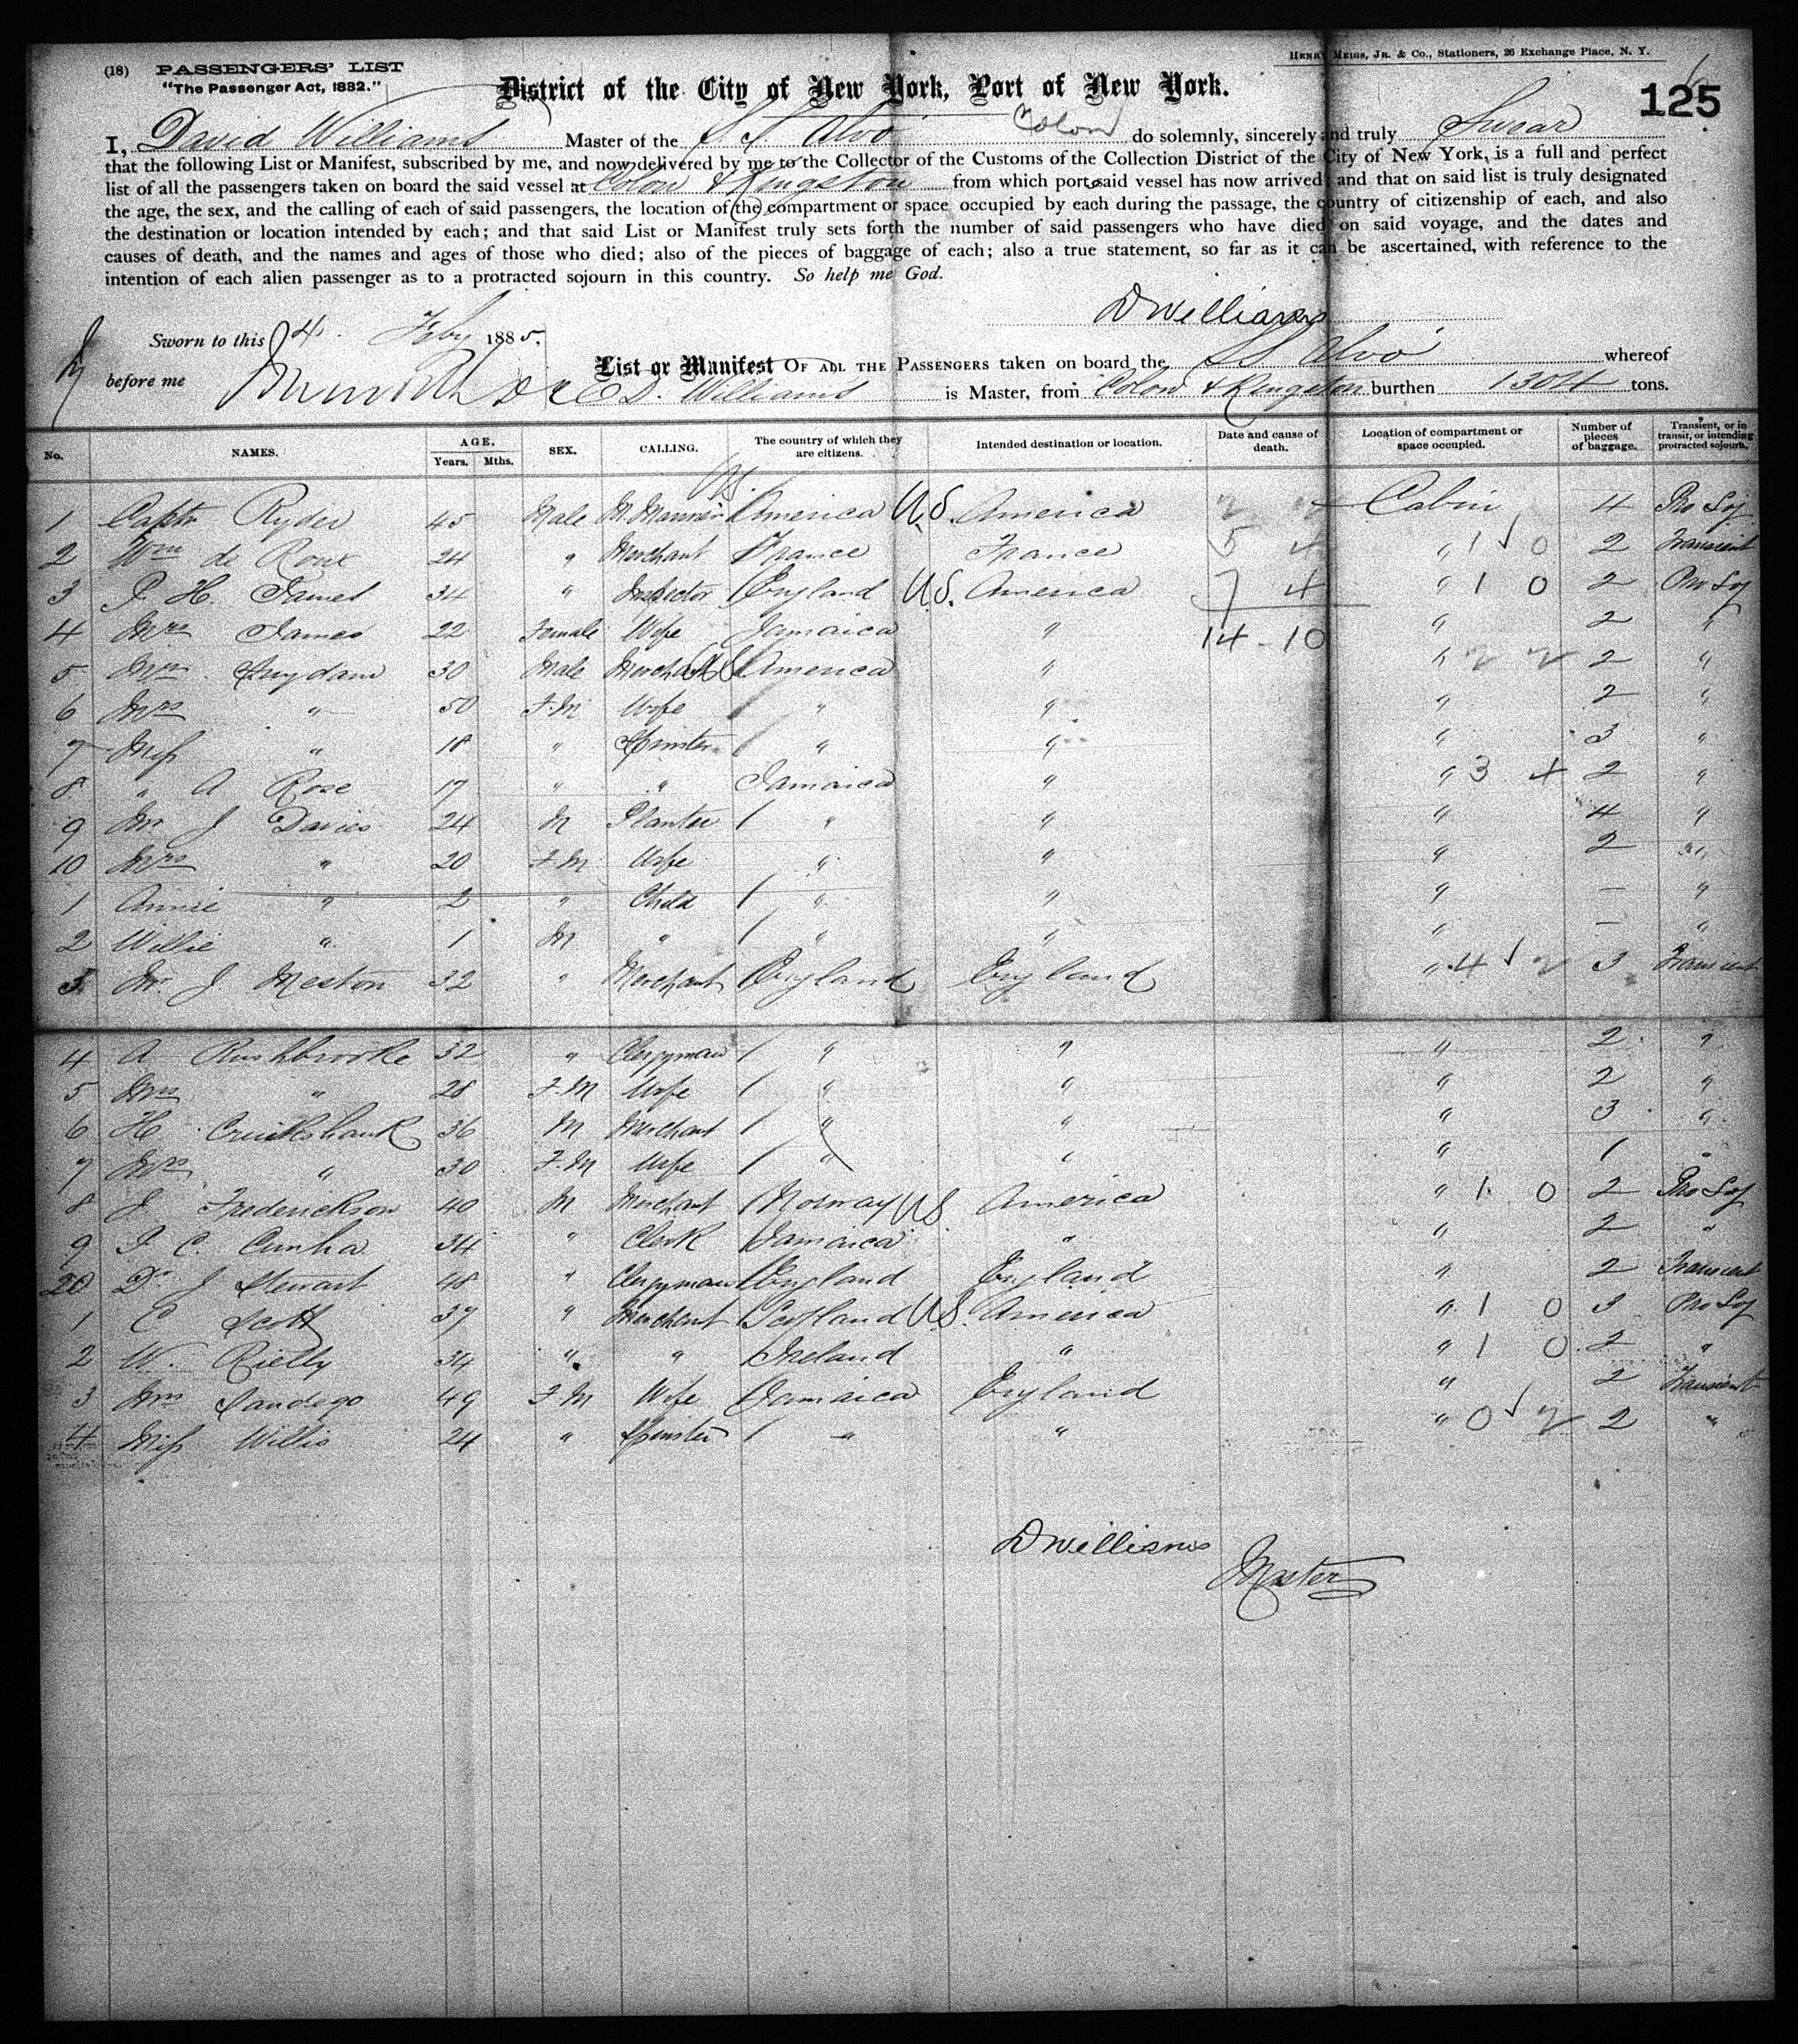 HENRY MEIGS, JR. & CO., Stationers, 26 Exchange Place, N. Y.
(18) PASSENGERS' LIST
"The Passenger Act, 1882."
District of the City of New York, Port of New York.
125
I, David Williams Master of the S. S. Alvo Colon do solemnly, sincerely and truly Swear
that the following List or Manifest, subscribed by me, and now delivered by me to the Collector of the Customs of the Collection District of the City of New York, is a full and perfect
list of all the passengers taken on board the said vessel at Colon & Kingston from which port said vessel has now arrived; and that on said list is truly designated
the age, the sex, and the calling of each of said passengers, the location of the compartment or space occupied by each during the passage, the country of citizenship of each, and also
the destination or location intended by each; and that said List or Manifest truly sets forth the number of said passengers who have died on said voyage, and the dates and
causes of death, and the names and ages of those who died; also of the pieces of baggage of each; also a true statement, so far as it can be ascertained, with reference to the
intention of each alien passenger as to a protracted sojourn in this country. So help me God.
D Williams
Sworn to this 4 Feby 1885.
before me
List or Manifest OF ALL THE PASSENGERS taken on board the S S Alvo whereof
D. Williams is Master, from Colon & Kingston burthen 1304 tons.
No. NAMES. AGE. Years. Mths. SEX. CALLING. The country of which they are citizens. Intended destination or location. Date and cause of death. Location of compartment or space occupied. Number of pieces of baggage. Transient, or in transit, or intending protracted sojourn.
1 Captn Ryder 45 Male M. Mariner America U.S. America Cabin 4 Pro Soj
2 Wm de Roux 24 " Merchant France France 5 4 " 1 0 2 Transient
3 P. H. James 34 " Inspector England U.S. America 7 4 " 1 0 2 Pro Soj
4 Mrs James 22 Female Wife Jamaica " 14-10 " 2 "
5 Mr Suydam 30 Male Merchant US America " " 2 "
6 Mrs " 50 F.M Wife " " " 2 "
7 Miss " 18 " Spinster " " " 3 "
8 " A Rose 17 " " Jamaica " " 3 4 2 "
9 Mr J Davies 24 M Planter " " " 4 "
10 Mrs " 20 F.M Wife " " " 2 "
1 Annie " 2 " Child " " " — "
2 Willie " 1 M " " " " — "
3 Mr J Meston 32 " Merchant England England " 4 3 Transient
4 A Rushbrooke 32 " Clergyman " " " 2 "
5 Mrs " 28 F.M Wife " " " 2 "
6 H Cruikshank 36 M Merchant " " " 3 "
7 Mrs " 30 F.M Wife " " " 1 "
8 J Frederickson 40 M Merchant Norway US America " 1 0 2 Pro Soj
9 J. C. Cunha 34 " Clerk Jamaica " " 2 "
20 Dr J Stewart 48 " Clergyman England England " 2 Transient
1 C Scott 37 " Merchant Scotland U.S. America " 1 0 3 Pro Soj
2 W. Rielly 34 " " Ireland " " 1 0 2 "
3 Mrs 49 F M Wife Jamaica England " 2 Transient
4 Miss Willis 24 " Spinster " " " 0 2 2 "
D Williams
Master